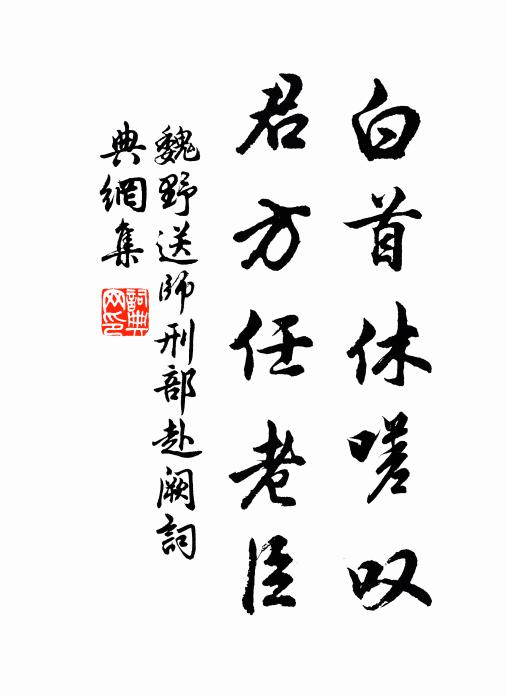 白首休嗟叹
君方任老臣
魏野送师刑部赴阙词
典网集
词典网印